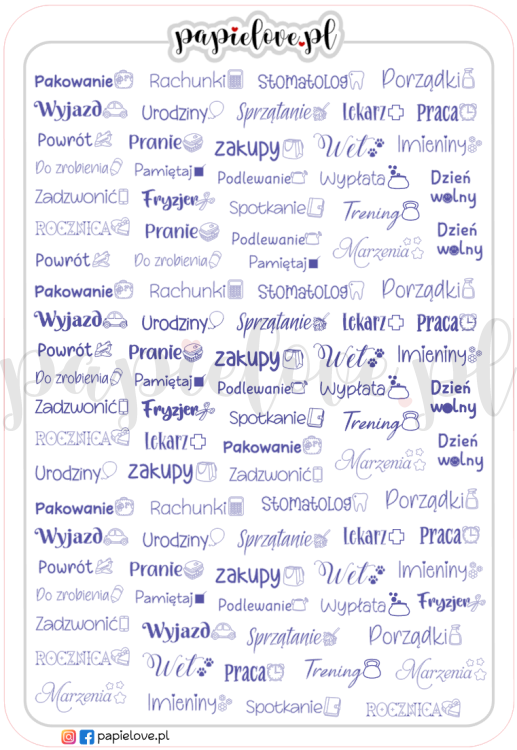 papielove.pl
Pakowanie Rachunki Stomatolog Porządki
Wyjazd Urodziny Sprzątanie Lekarz Praca
Powrót Pranie zakupy Wet Imieniny
Do zrobienia Pamiętaj Podlewanie Wypłata Dzień wolny
Zadzwonić Fryzjer Spotkanie Trening
ROCZNICA Pranie Podlewanie Marzenia Dzień wolny
Powrót Do zrobienia Pamiętaj
Pakowanie Rachunki Stomatolog Porządki
Wyjazd Urodziny Sprzątanie Lekarz Praca
papielove.pl
Powrót Pranie zakupy Wet Imieniny
Do zrobienia Pamiętaj Podlewanie Wypłata Dzień wolny
Zadzwonić Fryzjer Spotkanie Trening
ROCZNICA Lekarz Pakowanie Marzenia Dzień wolny
Urodziny zakupy Zadzwonić
Pakowanie Rachunki Stomatolog Porządki
Wyjazd Urodziny Sprzątanie Lekarz Praca
Powrót Pranie zakupy Wet Imieniny
Do zrobienia Pamiętaj Podlewanie Wypłata Fryzjer
Zadzwonić Wyjazd Sprzątanie Porządki
ROCZNICA Wet Praca Trening Marzenia
Marzenia Imieniny Spotkanie ROCZNICA
papielove.pl